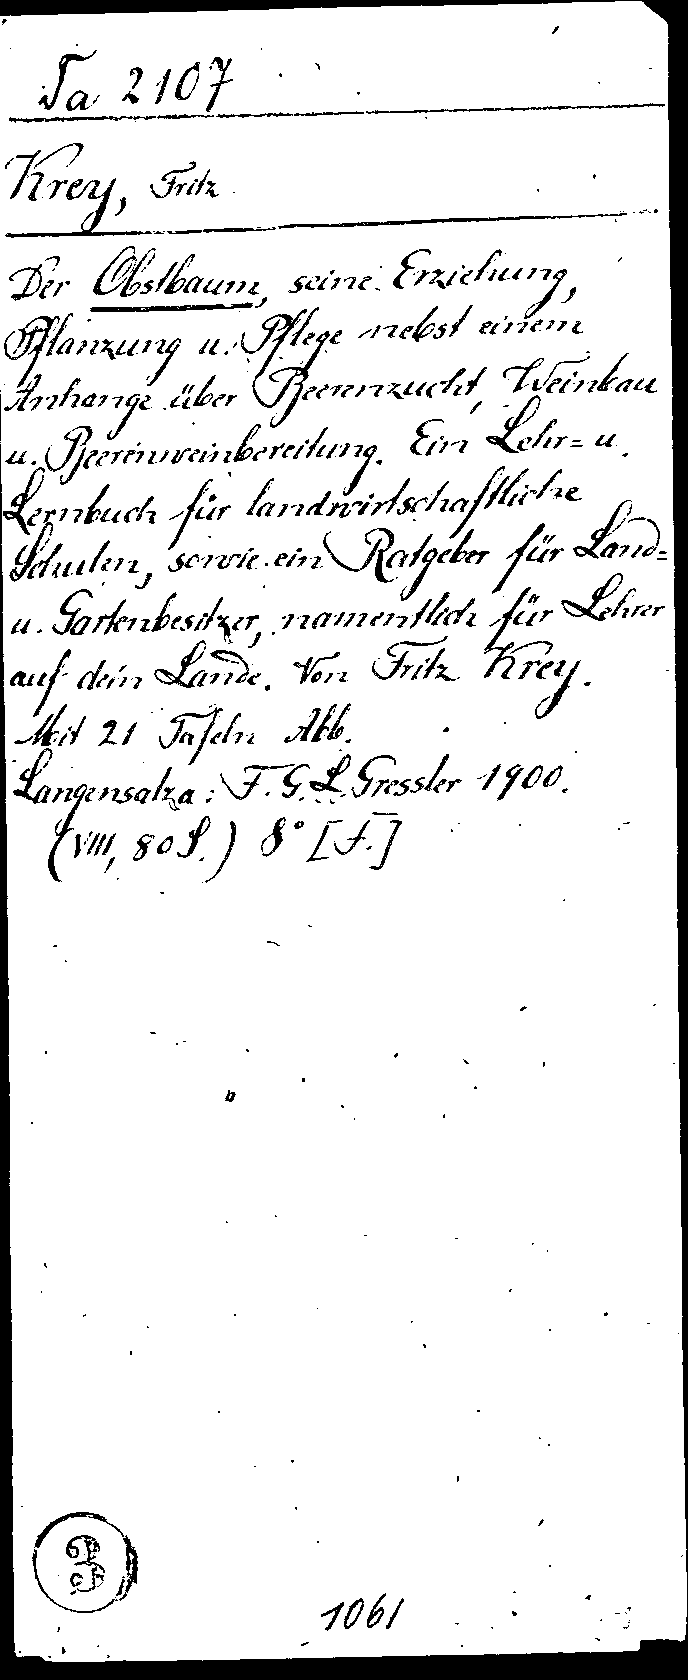 Ta 2107
Krey, Fritz
Der Obstbaum, seine Erziehung,
Pflanzung u. Pflege nebst einem
Anhange über Beerenzucht, Weinbau
u. Beerenweinbereitung. Ein Lehr= u.
Lernbuch für landwirtschaftliche
Schulen, sowie ein Ratgeber für Land=
u. Gartenbesitzer, namentlich für Lehrer
auf dem Lande. Von Fritz Krey.
Mit 21 Tafeln Abb.
Langensalza: F. G. L. Gressler 1900.
(VIII, 80 S.) 8° [f.]
3
1061